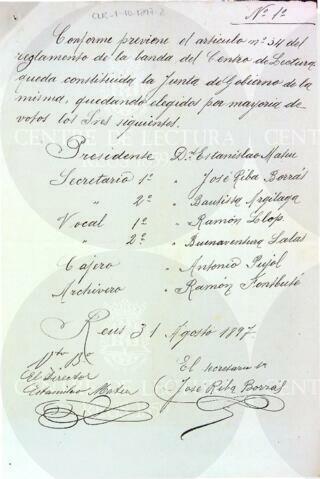 CLR-1-10-1897-2
Nº. 1º
Conforme previene el articulo nº 34 del
reglamento de la banda del Centro de Lectura,
queda constituida la Junta de Gobierno de la
misma, quedando elegidos por mayoria de
votos los Sres siguientes.
Presidente D. Estanislao Mateu
Secretario 1º " José Riba Borrás
" 2º " Bautista Argilaga
Vocal 1º " Ramón Llop.
" 2º " Buenaventura Salas
Cajero " Antonio Pujol
Archivero " Ramón Fontbuté
Reus 31 Agosto 1897.
Vto Bo
El Director
Estanislao Mateu
El secretario 1º
José Riba Borrás
CENTRE DE LECTURA